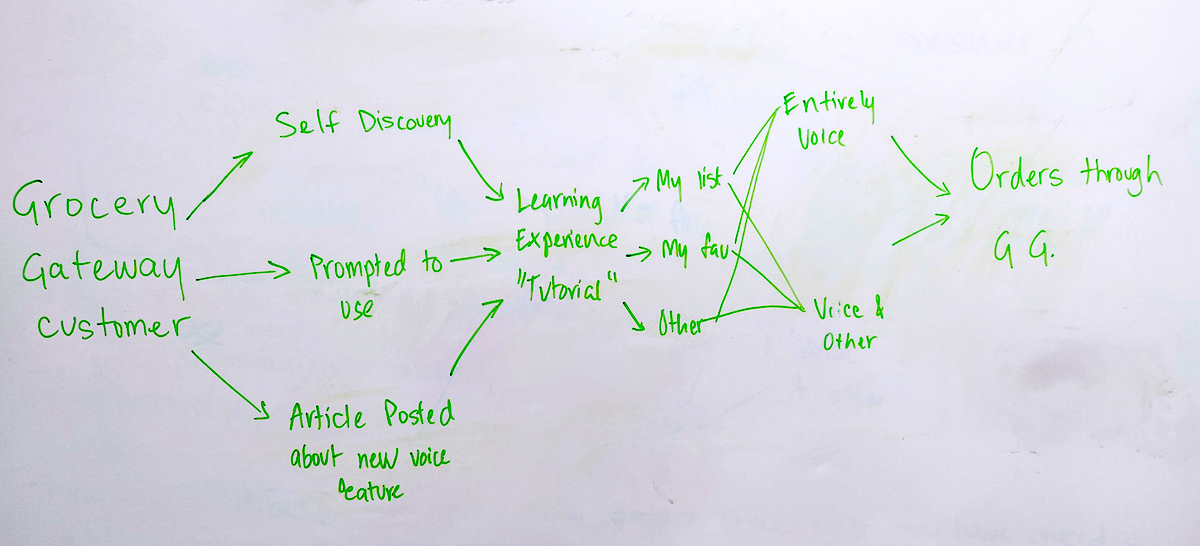 Grocery
Gateway
customer
Self Discovery
Prompted to
use
Article Posted
about new voice
feature
Learning
Experience
"Tutorial"
My list
My fav
Other
Entirely
Voice
Voice &
Other
Orders through
G G.